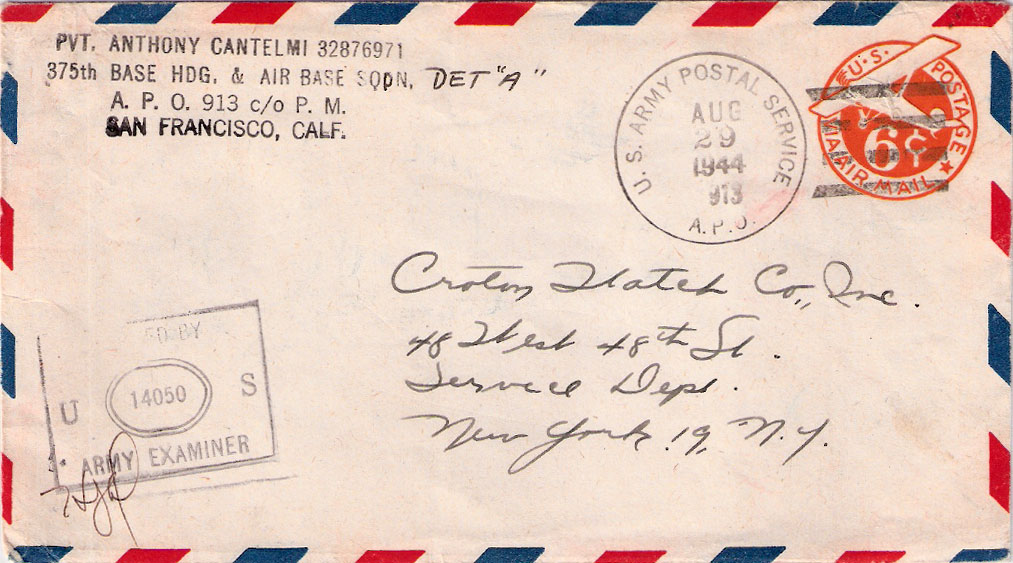 PVT. ANTHONY CANTELMI 32876971
375th BASE HDG. & AIR BASE SQDN. DET "A"
A. P. O. 913 c/o P. M.
SAN FRANCISCO, CALF.
U. S. ARMY POSTAL SERVICE
AUG
29
1944
913
A.P.O.
U.S. POSTAGE
6¢
VIA AIR MAIL
Croton Watch Co., Inc.
48 West 48th St.
Service Dept.
New York 19, N.Y.
ED BY
U 14050 S
ARMY EXAMINER